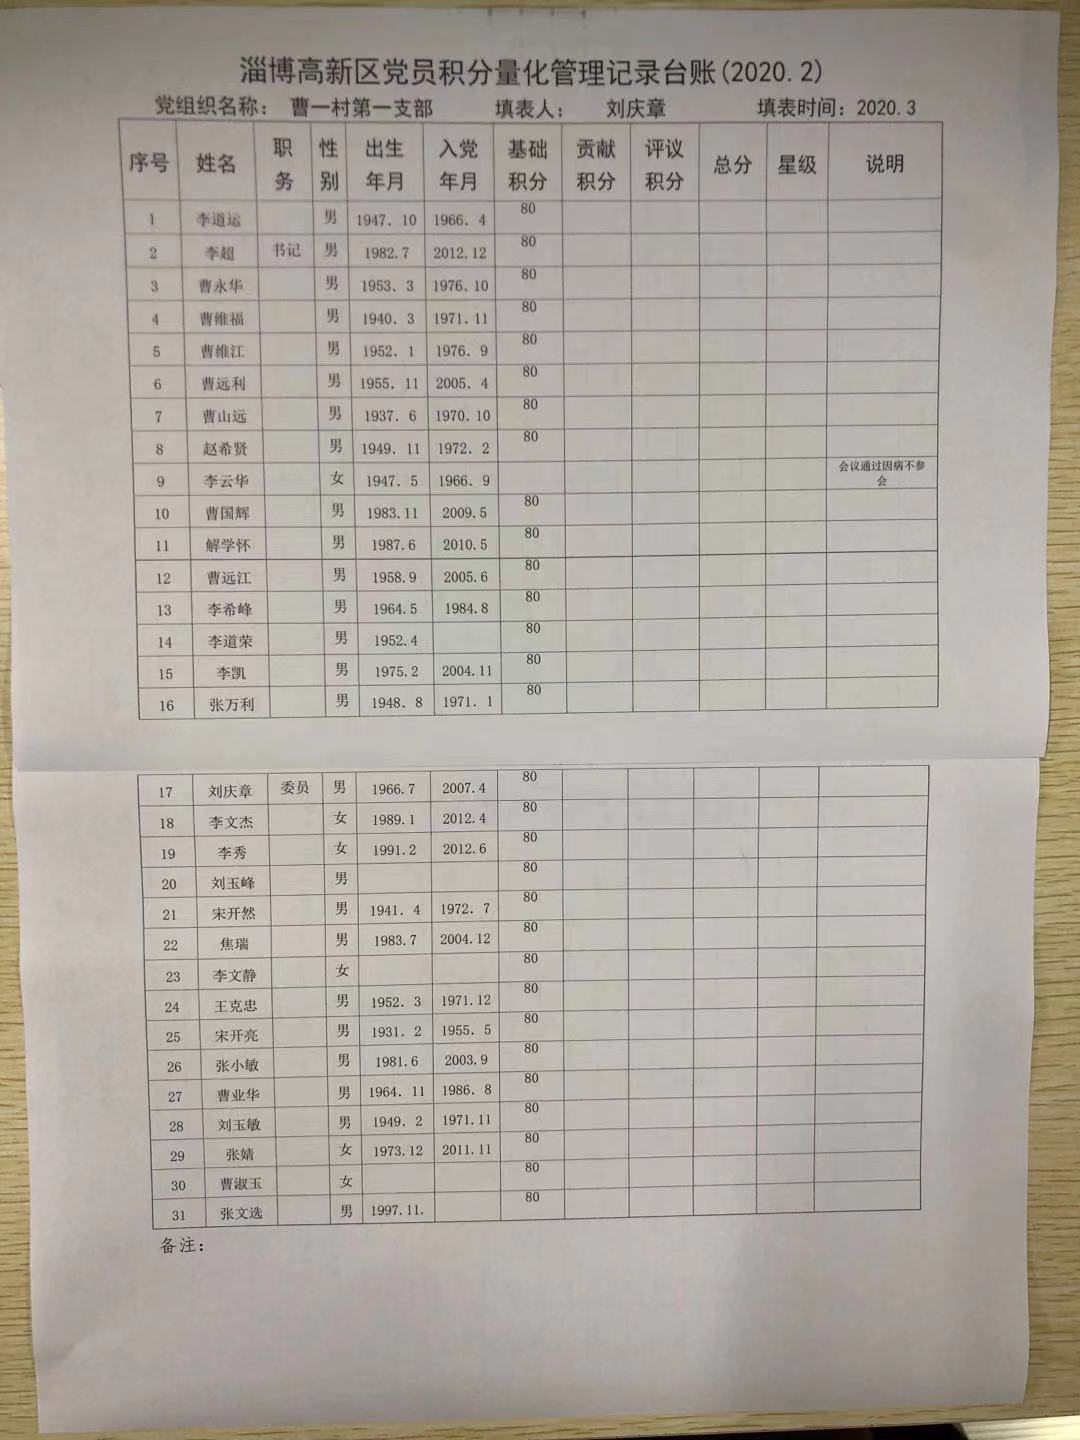 淄博高新区党员积分量化管理记录台账(2020.2)
党组织名称： 曹一村第一支部 填表人： 刘庆章 填表时间：2020.3
序号 姓名 职务 性别 出生年月 入党年月 基础积分 贡献积分 评议积分 总分 星级 说明
1 李道运 男 1947. 10 1966. 4 80
2 李超 书记 男 1982.7 2012.12 80
3 曹永华 男 1953. 3 1976.10 80
4 曹维福 男 1940. 3 1971.11 80
5 曹维江 男 1952. 1 1976. 9 80
6 曹远利 男 1955. 11 2005. 4 80
7 曹山远 男 1937. 6 1970.10 80
8 赵希贤 男 1949. 11 1972. 2 80
9 李云华 女 1947. 5 1966. 9 会议通过因病不参会
10 曹国辉 男 1983.11 2009.5 80
11 解学怀 男 1987.6 2010.5 80
12 曹远江 男 1958.9 2005.6 80
13 李希峰 男 1964.5 1984.8 80
14 李道荣 男 1952.4 80
15 李凯 男 1975.2 2004.11 80
16 张万利 男 1948. 8 1971. 1 80
17 刘庆章 委员 男 1966.7 2007.4 80
18 李文杰 女 1989.1 2012.4 80
19 李秀 女 1991.2 2012.6 80
20 刘玉峰 男 80
21 宋开然 男 1941. 4 1972. 7 80
22 焦瑞 男 1983.7 2004.12 80
23 李文静 女 80
24 王克忠 男 1952. 3 1971.12 80
25 宋开亮 男 1931. 2 1955. 5 80
26 张小敏 男 1981.6 2003.9 80
27 曹业华 男 1964. 11 1986. 8 80
28 刘玉敏 男 1949. 2 1971.11 80
29 张婧 女 1973.12 2011.11 80
30 曹淑玉 女 80
31 张文选 男 1997.11. 80
备注：